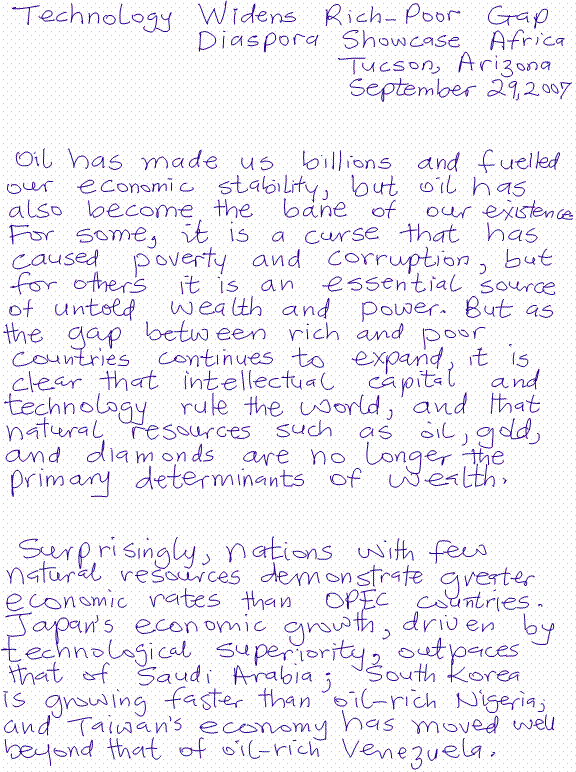 Technology Widens Rich-Poor Gap
Diaspora Showcase Africa
Tucson, Arizona
September 29, 2007
Oil has made us billions and fuelled
our economic stability, but oil has
also become the bane of our existence
For some, it is a curse that has
caused poverty and corruption, but
for others it is an essential source
of untold wealth and power. But as
the gap between rich and poor
countries continues to expand, it is
clear that intellectual capital and
technology rule the world, and that
natural resources such as oil, gold,
and diamonds are no longer the
primary determinants of wealth.
Surprisingly, nations with few
natural resources demonstrate greater
economic rates than OPEC countries.
Japan's economic growth, driven by
technological superiority, outpaces
that of Saudi Arabia; South Korea
is growing faster than oil-rich Nigeria;
and Taiwan's economy has moved well
beyond that of oil-rich Venezuela.